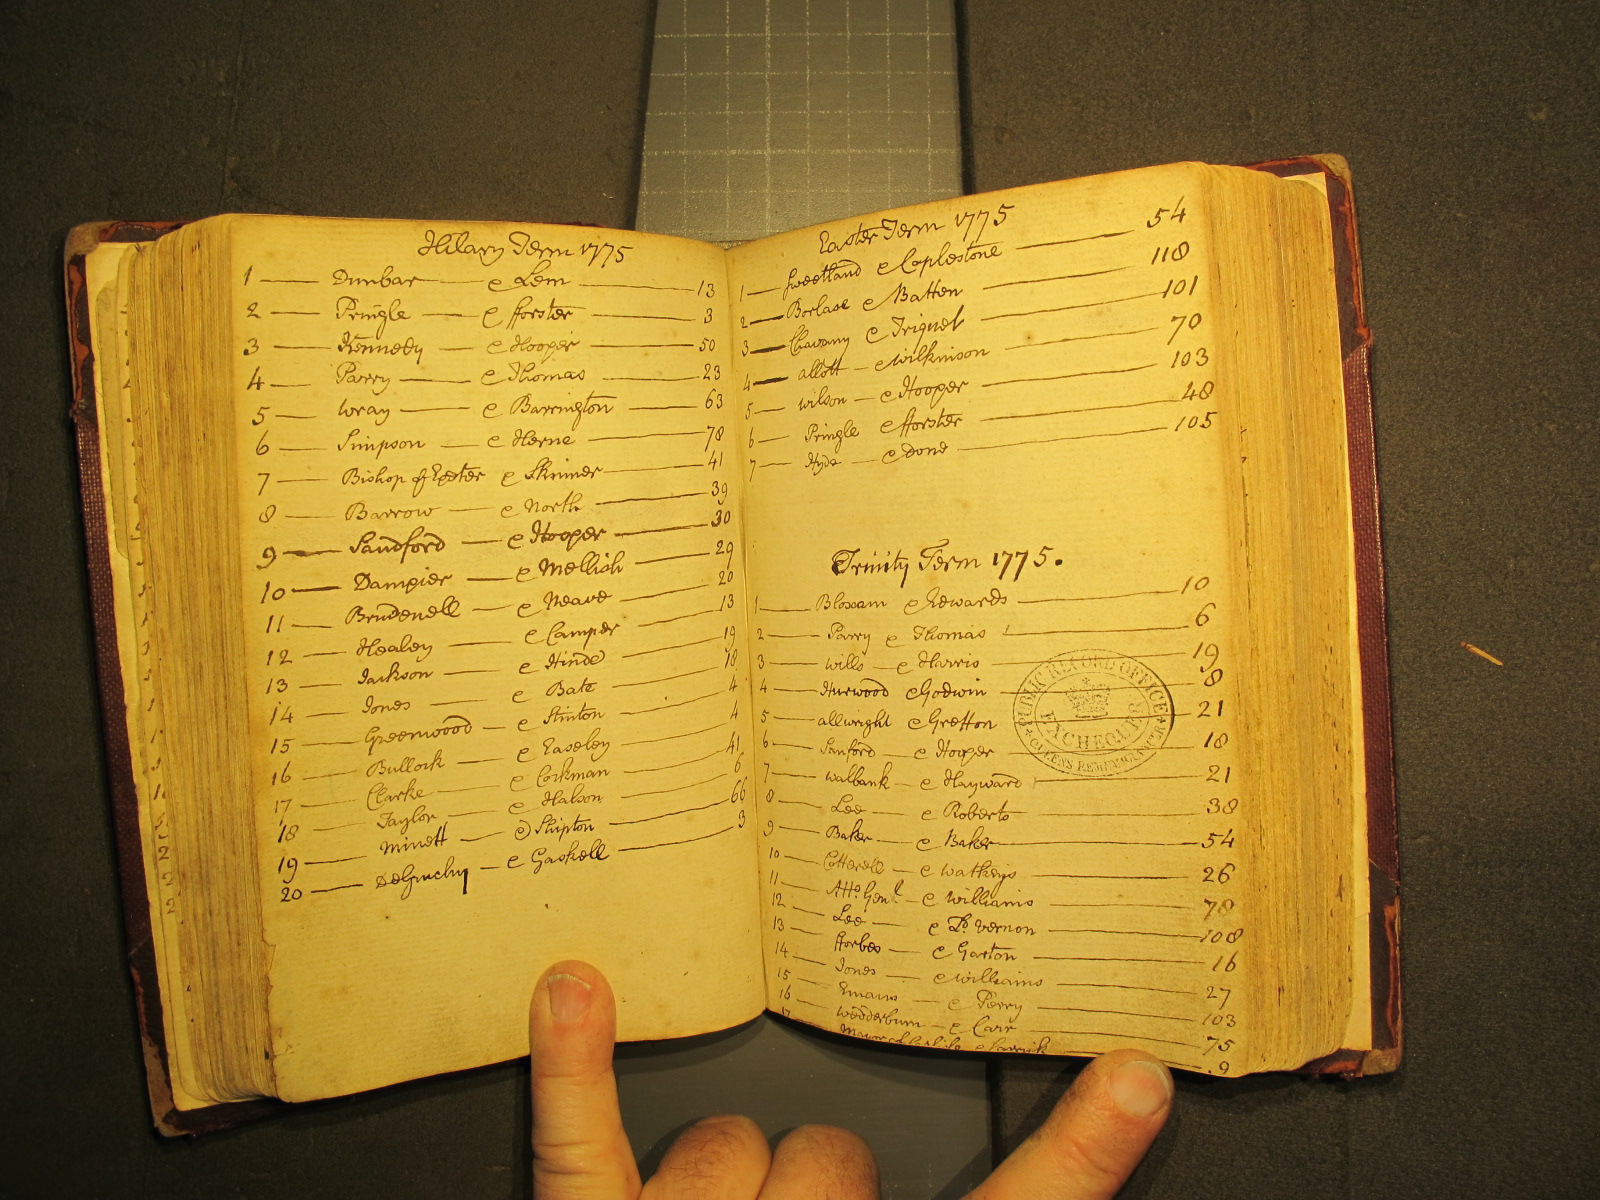 Hilary Term 1775
1 — Dunbar — e Lem — 13
2 — Pringle — e fforster — 3
3 — Kennedy — e Hooper — 50
4 — Parry — e Thomas — 23
5 — Wray — e Barrington — 63
6 — Simpson — e Herne — 78
7 — Bishop of Exeter e Skinner — 41
8 — Barrow — e North — 39
9 — Sandford — e Hooper — 30
10 — Dampier — e Mellish — 29
11 — Brudenell — e Neave — 20
12 — Healey — e Camper — 13
13 — Jackson — e Hinde — 19
14 — Jones — e Bate — 18
15 — Greenwood — e Stinton — 4
16 — Bullock — e Easeley — 4
17 — Clarke — e Corkman — 41
18 — Taylor — e Halson — 6
19 — Minett — e Shipton — 66
20 — — e Gaskell — 3
Easter Term 1775
1 — Sweetland e Coplestone — 54
2 — Borlase e Batten — 118
3 — Chavany e Triquet — 101
4 — allott — e Wilkinson — 70
5 — Wilson — e Hooper — 103
6 — Pringle e fforster — 48
7 — Hyde — e Done — 105
Trinity Term 1775.
1 — Bloxam e Edwards — 10
2 — Parry e Thomas — 6
3 — Wills — e Harris — 19
4 — Hurwood e Godwin — 8
5 — allwright e Gretton — 21
6 — Sanford — e Hooper — 18
7 — Walbank — e Hayward — 21
8 — Lee — e Roberts — 38
9 — Baker — e Baker — 54
10 — Cotterell — e Watkeys — 26
11 — Atto. Genl. — e Williams — 78
12 — Lee — e Ld. Vernon — 108
13 — fforbes — e Garton — 16
14 — Jones — e Williams — 27
15 — Emans — e Perry — 103
16 — Wedderburn — e Carr — 75
17 — 9
PUBLIC RECORD OFFICE
EXCHEQUER
QUEENS REMEMBRANCER